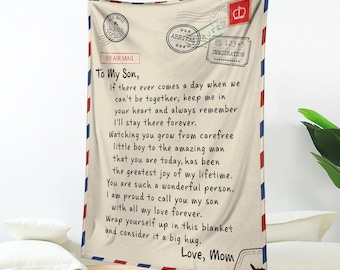 ARRIVAL
IMMIGRATION
BY AIR MAIL
To My Son,
If there ever comes a day when we
can't be together, keep me in
your heart and always remember
I'll stay there forever.
Watching you grow from carefree
little boy to the amazing man
that you are today, has been
the greatest joy of my lifetime.
You are such a wonderful person.
I am proud to call you my son
with all my love forever.
Wrap yourself up in this blanket
and consider it a big hug.
Love, Mom